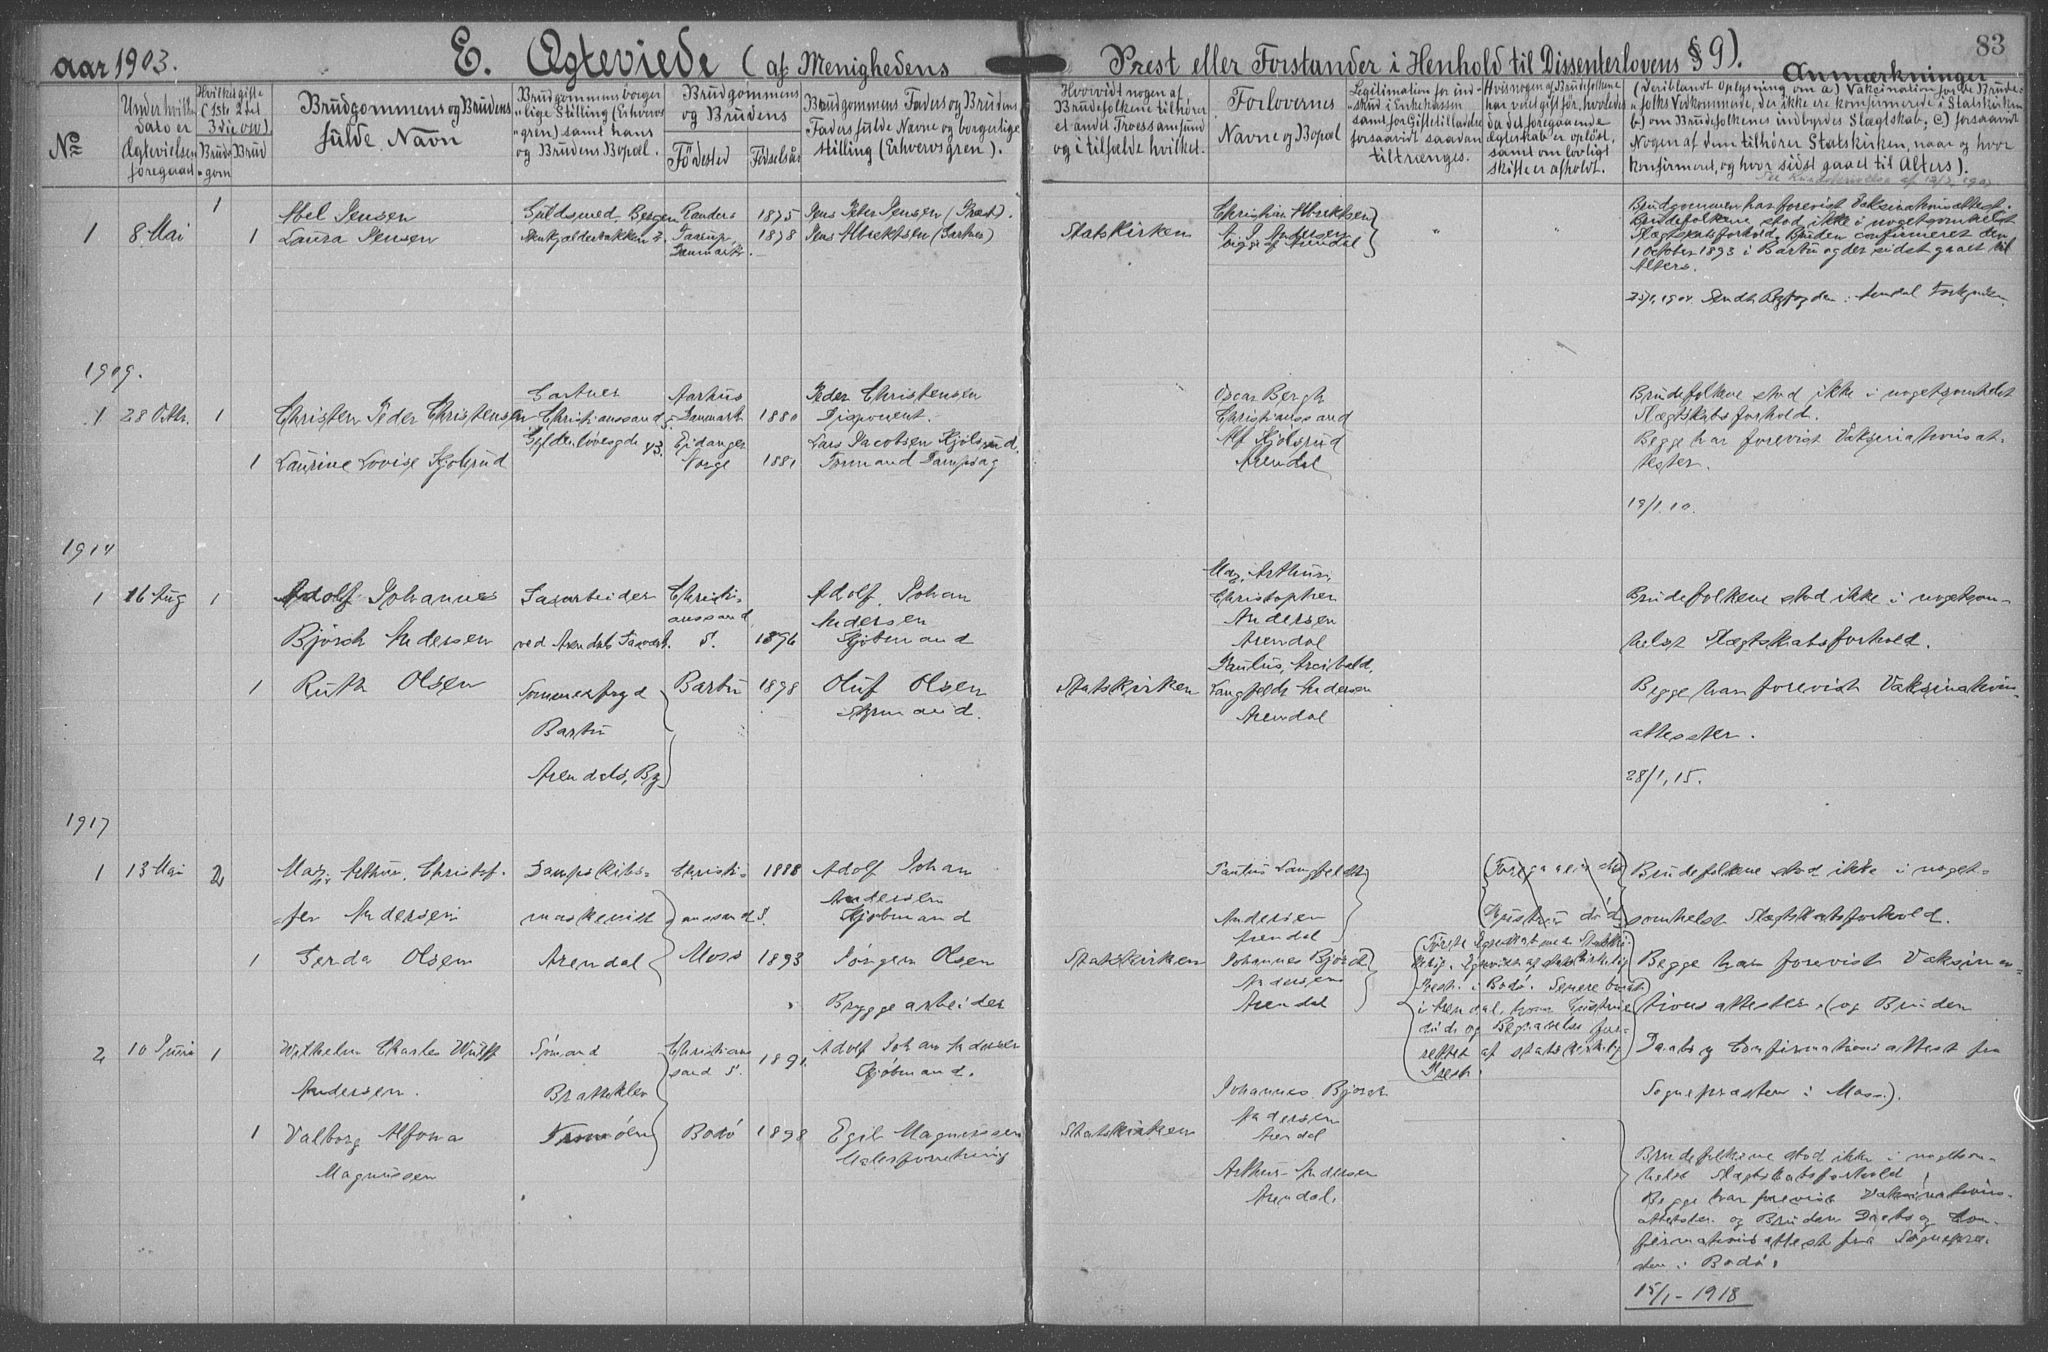 aar 1903.
E. Ægteviede (af Menighedens Prest eller Forstander i Henhold til Dissenterlovens § 9).
83
No
Under hvilken dato er Ægtevielsen foregaaet
Hvilket gifte (1ste 2det 3die osv.)
Brudgom
Brud
Brudgommens og Brudens fulde Navn
Brudgommens borgerlige Stilling (Erhvervsgren) samt hans og Brudens Bopæl.
Brudgommens og Brudens
Fødested
Fødselsår
Brudgommens Faders og Brudens Faders fulde Navne og borgerlige stilling (Erhvervsgren).
Hvorvidt nogen af Brudefolkene tilhører et andet Troessamfund og i tilfælde hvilket.
Forlovernes Navne og Bopæl
Legitimation for indskud i Enkekassen samt for Giftetilladelse forsaavidt saadan tiltrænges.
Hvis nogen af Brudefolkene har været gift før, hvorledes da det foregaaende Ægteskab er opløst, samt om lovligt skifte er afholdt.
Anmærkninger
(Deriblandt Oplysning om a) Vaksination for de Brudefolks Vedkommende, der ikke ere konfirmerede i Statskirken b) om Brudefolkenes indbyrdes Slægtskab; c) forsaavidt Nogen af dem tilhører Statskirken, naar og hvor konfirmeret, og hvor sidst gaaet til Alters).
1
8 Mai
1
Abel Jensen
Guldsmed Bergen
Randers
1875
Jens Peter Jensen (Præst).
1
Laura Jensen
Taarup Danmark.
1878
Jens Albrektsen (Gartner)
Statskirken
Christian Albrektsen
A. J. Andersen
begge af Arendal
"
"
Brudgommen har forevist Vaksinationsattest.
Brudefolkene stod ikke i nogetsomhelst
Slægtskabsforhold, Bruden confirmeret den
1 October 1893 i Barbu og der sidst gaaet til
Alters.
1909.
1
28 Oktbr.
1
Christen Peder Christensen
Gartner
Christianssand S.
Gyldenløvesgde 43.
Aarhus
Danmark
1880
Peder Christensen
Disponent.
1
Laurine Lovise Kjølsrud
Eidanger
Norge
1881
Lars Jacobsen Kjølsrud.
Formand Dampsag
Oscar Bergh
Christianssand
Alf Kjølsrud
Arendal
Brudefolkene stod ikke i nogetsomhelst
Slægtskabsforhold.
Begge har forevist Vaksinationsat-
tester.
19/1.10.
1914
1
16 Aug
1
Adolf Johannes
Bjørsch Andersen
ved Arendals
Christi-
anssand
S.
1896
Adolf Johan
Andersen
Kjøbmand
1
Ruth Olsen
Sommerfryd
Barbu
Arendals By
Barbu
1898
Oluf Olsen
Styrmand.
Statskirken
Max. Arthur,
Christopher
Andersen
Arendal
Paulus, Arcibald,
Langfeldt Andersen
Arendal
Brudefolkene stod ikke i nogetsom-
helst Slægtskabsforhold.
Begge har forevist Vaksinations-
attester.
28/1, 15.
1917
1
13 Mai
2
Max. Arthur, Christof-
fer Andersen
Dampskibs-
maskenist
Christi-
anssand S.
1888
Adolf Johan
Andersen
Kjøbmand
1
Gerda Olsen
Arendal
Moss
1893
Jørgen Olsen
Bryggearbeider
Statskirken
Paulus Langfeldt
Andersen
Arendal
Johannes Bjørsch
Andersen
Arendal
Foregaaende
Hustru død
Første
i Bodø. Senere
i Arendal, hvor Hustruen
døde og Begravelse for-
rettet af statskirkelig
Prest.
Brudefolkene stod ikke i noget-
somhelst Slægtskabsforhold.
Begge har forevist Vaksina-
tionsattester. (og Bruden
Daabs og Confirmationsattest fra
Sognepræsten i Moss).
2
10 Juni
1
Wilhelm Charles Wulff
Andersen.
Sømand
Bratteklev
Christian-
sand S.
1891.
Adolf Johan Andersen
Kjøbmand.
1
Valborg Alfona
Magnussen
Tromøen
Bodø
1898
Egil Magnussen
Malerforretning
Statskirken
Johannes Bjørsch
Andersen
Arendal
Arthur Andersen
Arendal.
Brudefolkene stod ikke i nogetsom-
helst Slægtskabsforhold.
Begge har forevist Vaksinations-
attester og Bruden Daabs og Con-
firmationsattest fra Sognepræ-
sten i Bodø.
15/1 - 1918